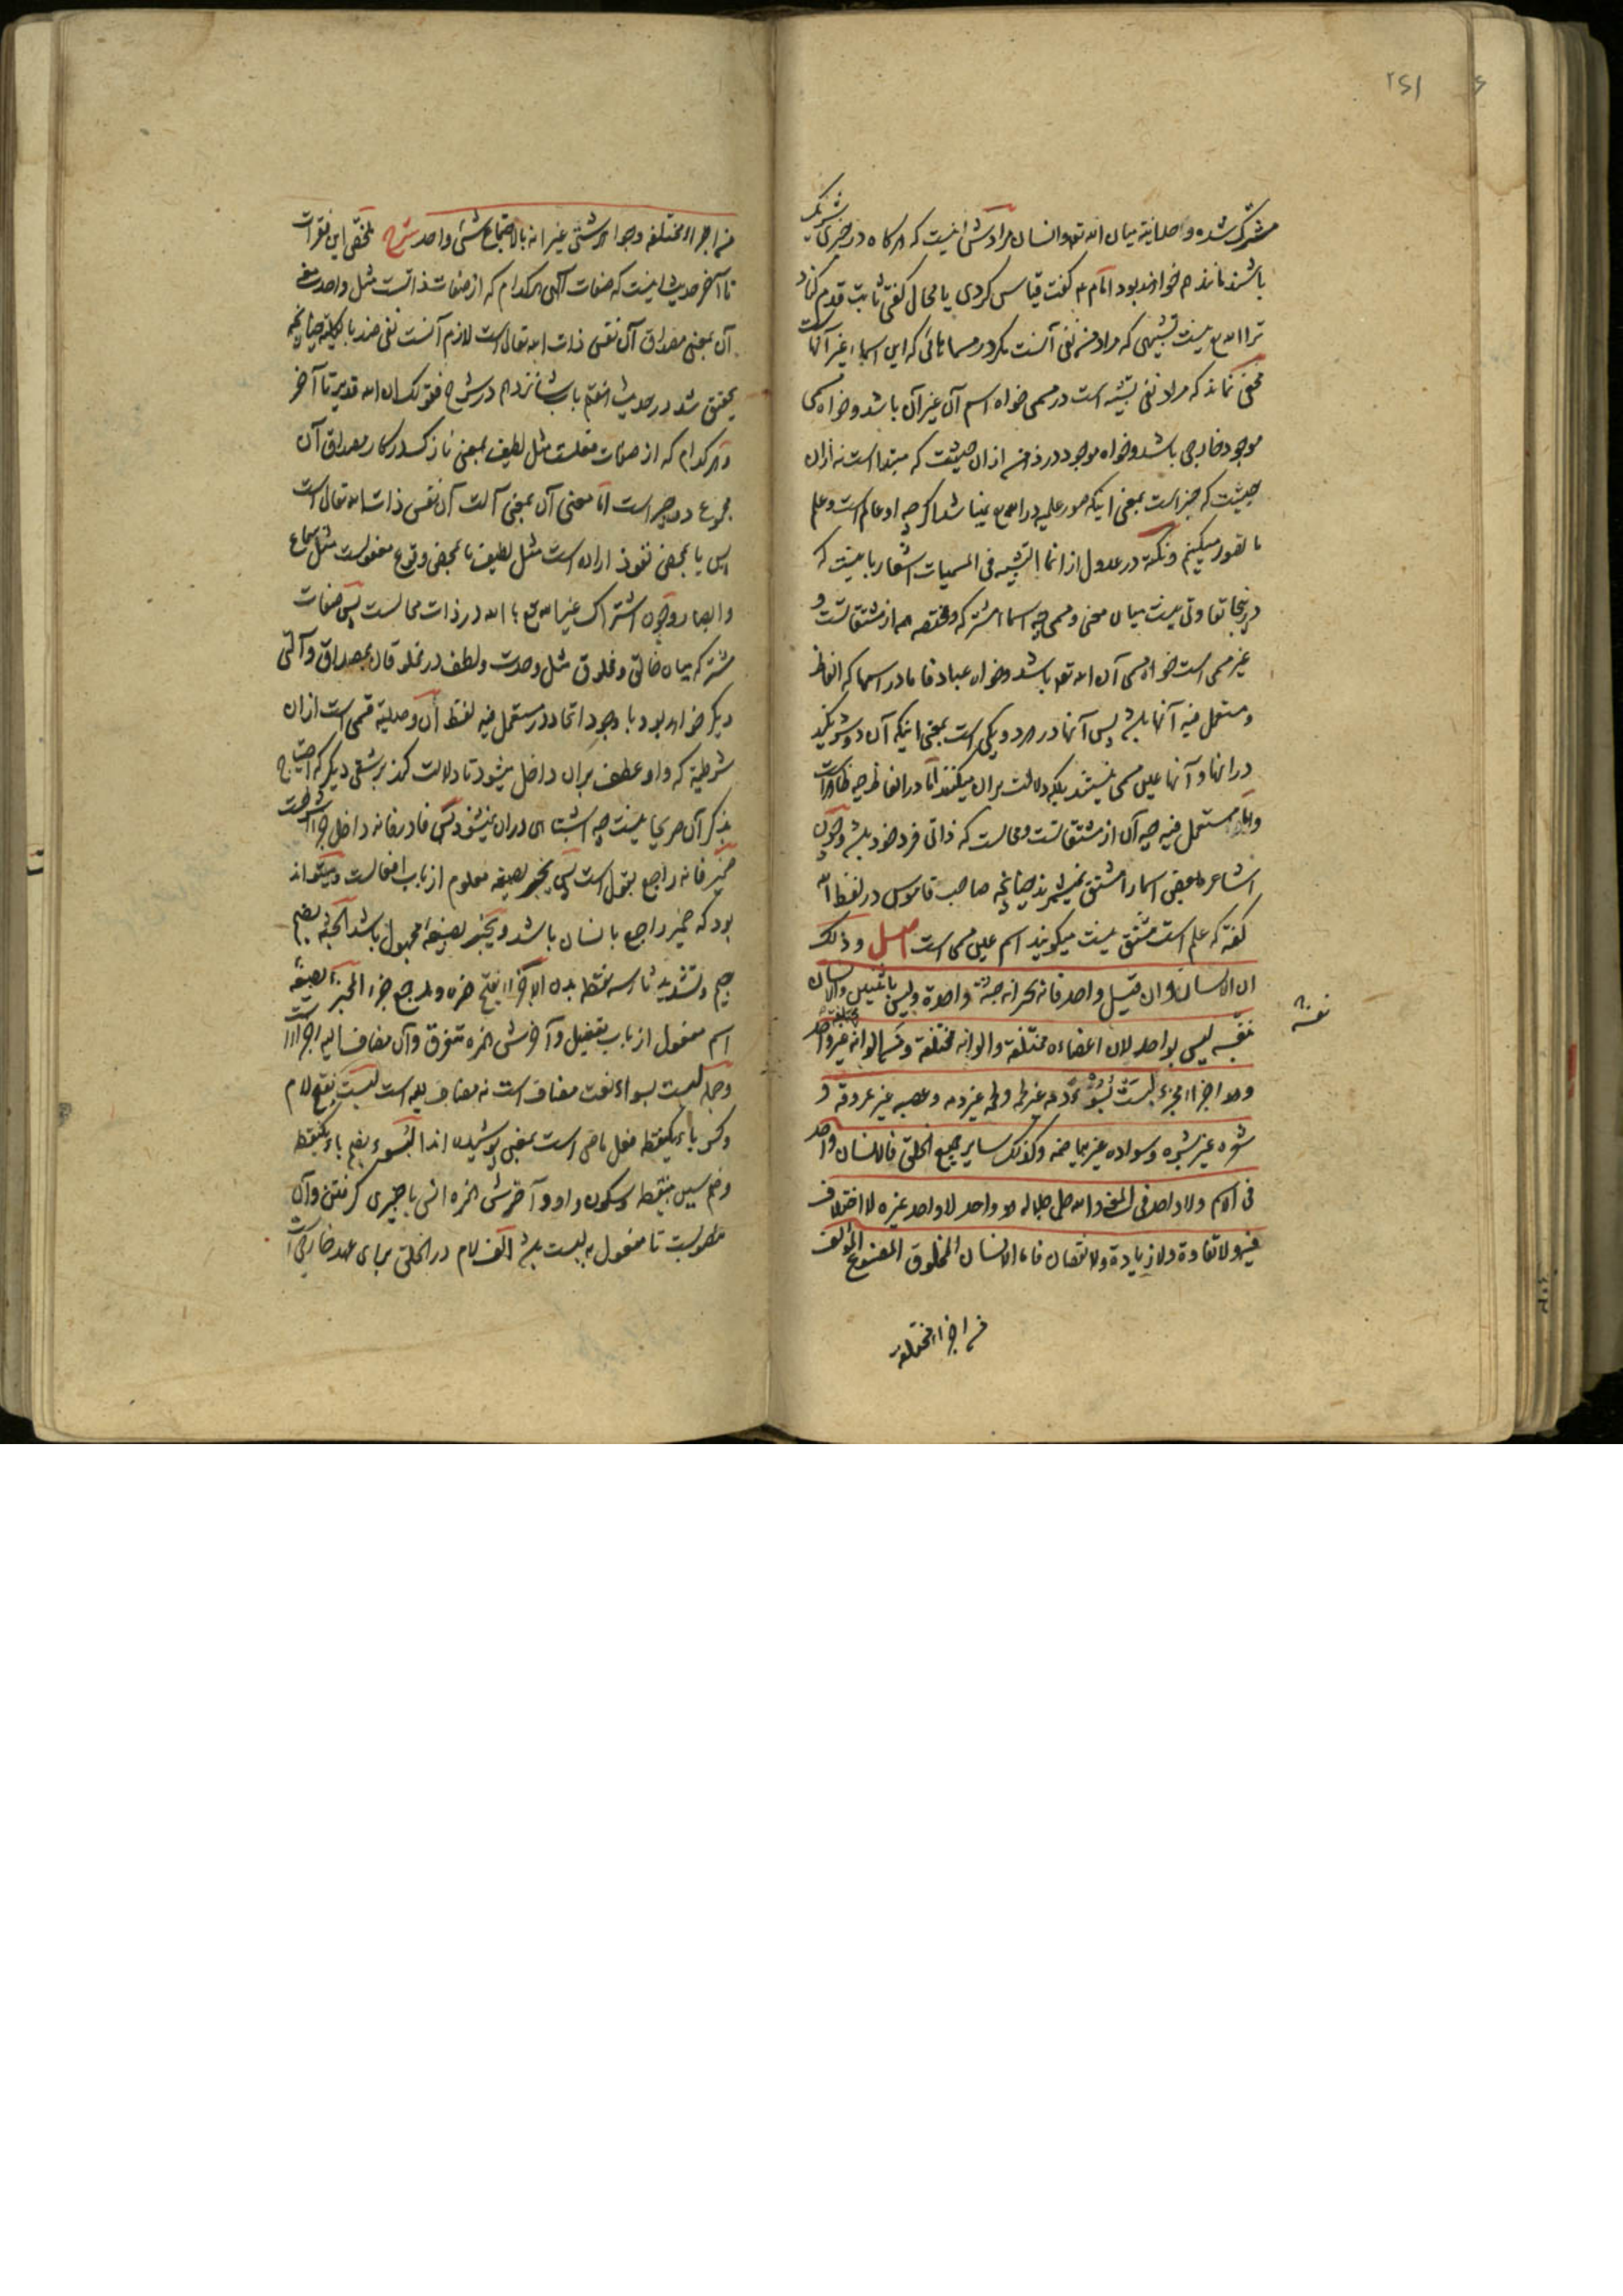 ۲۶۱
مشترک شده واحدانیة میان الله تع وانسان مراد سائل اینست که هرگاه در چیزی شریک
باشند مانند هم خواهند بود امام ع گفت قیاس کردی یا محال گفتی ثابت قدم کناد
ترا الله تع نیست تشبیهی که مراد منست نفی آنست مگر در مسماهائی که این اسماء غیر آنهاست
مخفی نماند که مراد نفی تشبیه است در مسمی خواه اسم آن غیر آن باشد وخواه مسمی
موجود خارجی باشد وخواه موجود در ذهن از آن حیثیت که مبتدا است نه از آن
حیثیت که خبر است بمعنی اینکه صور علمیه در الله تع نمیباشد اگرچه او عالم است وعلم
ما تصور میکنیم ونکته در عدول از انما التشبیه فی المسمیات اشعار باینست که
در اینجا تفاوتی نیست میان معنی ومسمی چه اسماء مشترکه ومختصه همه از مشتقاتست و
غیر مسمی است خواه مسمی آن الله تع باشد وخواه عباد فاما در اسما که الفاظ
ومستعمل فیه آنها باشد پس آنها در هر دو یکی است بمعنی اینکه آن دو شریکند
در انها وآنها عین مسمی نیستند بلکه دلالت بران میکنند اما در الفاظ چه ظاهر است
واما مستعمل فیه چه آن از مشتقاتست ومحالست که ذاتی فرد خود باشد وچون
اشاعره بعضی اسما را مشتق نمیشمرند چنانچه صاحب قاموس در لفظ الله
گفته که علم است مشتق نیست میگویند اسم عین مسمی است اصل وذلک
ان الانسان وان قیل واحد فانه یخبر انه جثة واحدة ولیس باثنین والانسان
نفسه لیس بواحد لان اعضاءه مختلفة والوانه مختلفة ومن الوانه مختلفة غیر واحد
نفسه
وهو اجزاء مجزء لیست بسواء دمه غیر لحمه ولحمه غیر دمه وعصبه غیر عروقه و
شعره غیر بشره وسواده غیر بیاضه وکذلک سایر جمیع الخلق فالانسان واحد
فی الاسم ولا واحد فی المعنی والله جل جلاله هو واحد لا واحد غیره لا اختلاف
فیه ولا تفاوت ولا زیادة ولا نقصان فاما الانسان المخلوق المصنوع المؤلف
من اجزاء مختلفة
من اجزاء مختلفة وجواهر شتی غیر انه بالاجتماع شئ واحد شرح ملخص این فقرات
تا آخر حدیث اینست که صفات الهی هرکدام که از صفات ذاتست مثل واحد معنی
آن بمعنی مصداق آن نفس ذات الله تعالی است لازم آنست نفی ضد بالکلیه چنانچه
تحقیق شد در حدیث هفتم باب شانزدهم در شرح فقولک ان الله قدیر تا آخر
وهرکدام که از صفات فعلست مثل لطیف بمعنی نازک در کار مصداق آن
مجموع دو چیز است اما معنی آن بمعنی آلت آن نفس ذات الله تعالی است
پس یا بمحض نفوذ اراده است مثل لطیف یا بمحض وقوع مفعولست مثل سماع
وابصار وچون اشتراک غیر الله تع با الله در ذات محالست پس صفات
مشترکه میان خالق ومخلوق مثل وحدت ولطف در مخلوقات بمصداق وآلتی
دیگر خواهد بود با وجود اتحاد در مستعمل فیه لفظ ان وصلیة قسمی است از ان
شرطیة که واو عطف بران داخل میشود تا دلالت کند بر شقی دیگر که احتیاج
بذکر آن صریحا نیست چه اشتباهی دران نمیشود پس فا در فانه داخل جزاء شرطست
ضمیر فانه راجع بقول است پس یخبر بصیغه معلوم از باب افعالست ومیتواند
بود که ضمیر راجع بانسان باشد ویخبر بصیغه مجهول باشد الجثة بضم
جیم وتشدید ثاء سه نقطه بدن الاجزاء بفتح همزه جمع جزء المجزء بصیغه
اسم مفعول از باب تفعیل وآخرش همزه متفرق وآن مضاف الیه اجزاست
وجمله لیست بسواء نعت مضاف است نه مضاف الیه است لبست بفتح لام
وکسر باء یکنقطه فعل ماضی است بمعنی پوشیده اند البسوء بضم باء یکنقطه
وضم سین بینقطه وسکون واو وآخرش همزه انس با چیزی گرفتن وآن
منصوبست تا مفعول به لبست باشد الف لام در الخلق برای عهد خارجی است